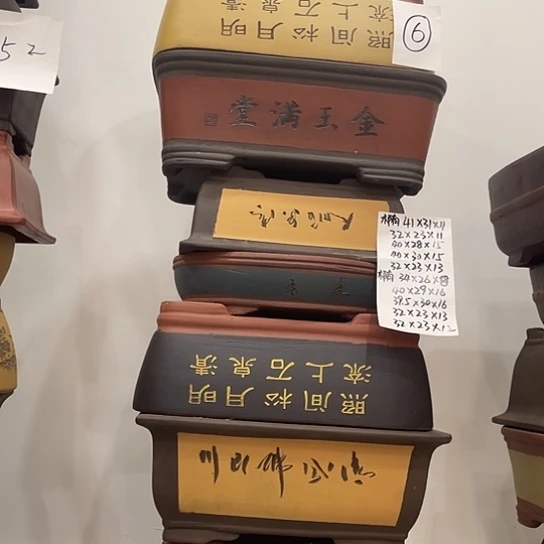 52
⑥
明月松间照
清泉石上流
金玉满堂
椭 41×31×11
32×23×11
40×28×15
40×30×15
32×23×13
椭 34×26×8
40×29×16
39.5×30×16
32×23×13
32×23×12
明月松间照
清泉石上流